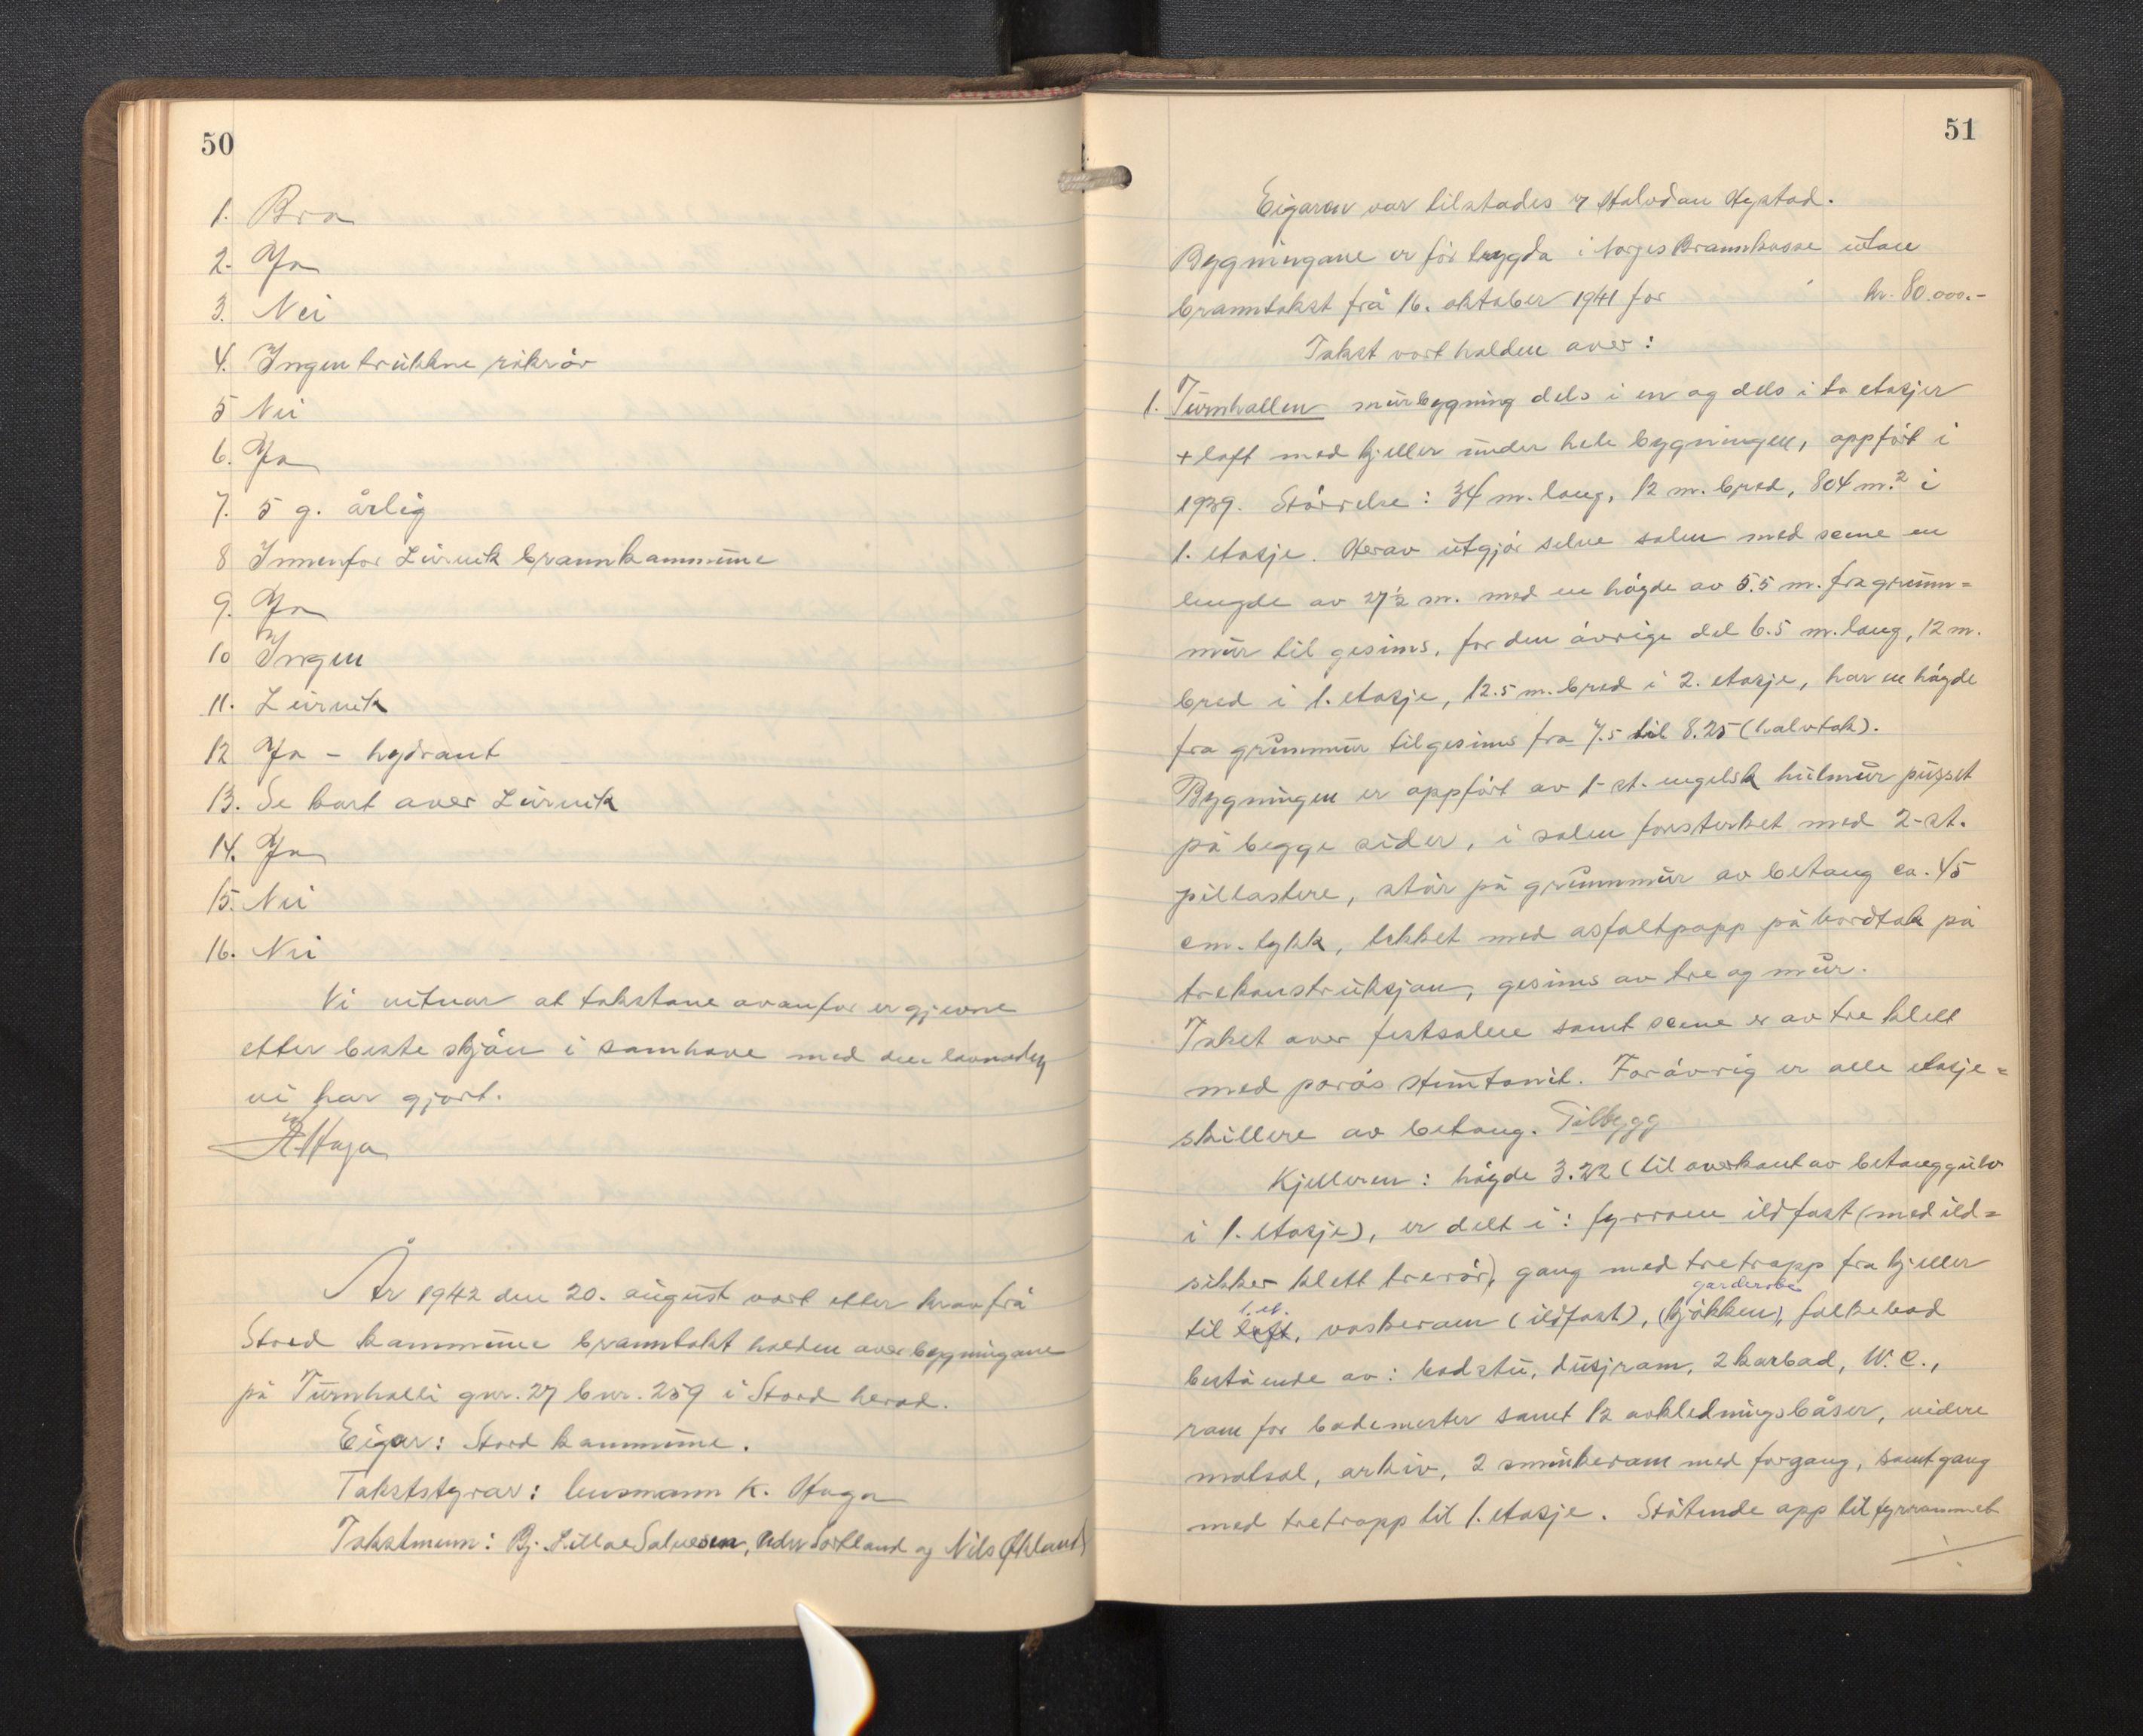 50
1. Bra
2. Ja
3. Nei
4. Ingen trukkne rökrör
5 Nei
6. Ja
7. 5 g. årlig
8 Innenfor Leirvik brannkommune
9. Ja
10 Ingen
11. Leirvik
12 Ja - hydrant
13. Se kart over Leirvik
14. Ja
15. Nei
16. Nei
Vi vitnar at takstane ovanfor er gjevne
etter beste skjön i samhove med den lovnaden
vi har gjort.
K Haga
År 1942 den 20. august vart etter krav frå
Stord kommune branntakst halden over bygningane
på Turnhalli gnr. 27 bnr. 259 i Stord herad.
Eigar: Stord kommune.
Takststyrar: lensmann K. Haga
Takstmenn: Bj. Litlae Salvesen, Peder Sortland og Nils Økland
51
Eigaren var tilstades v Halvdan Hystad.
Bygningane er för trygda i Norges Brannkasse utan
branntakst frå 16. oktober 1941 for kr. 80.000.-
Takst vart halden over:
1. Turnhallen murbygning dels i en og dels i to etasjer
+ loft med kjeller under hele bygningen, oppfört i
1939. Störrelse: 34 m. lang, 12 m. bred, 804 m.² i
1. etasje. Herav utgjör selve salen med scene en
lengde av 27½ m. med en högde av 5.5 m. fra grunn=
mur til gesims, for den övrige del 6.5 m. lang, 12 m.
bred i 1. etasje, 12.5 m. bred i 2. etasje, har en högde
fra grunnmur til gesims fra 7.5 til 8.25 (halvtak).
Bygningen er oppfört av 1-st. engelsk hulmur pusset
på begge sider, i salen forsterket med 2-st.
pillastere, står på grunnmur av betong ca. 45
cm. tykk, tekket med asfaltpapp på bordtak på
trekonstruksjon, gesims av tre og mur.
Taket over festsalen samt scene er av tre kledt
med porös Huntonit. Forövrig er alle etasje=
skillere av betong. Tilbygg
Kjelleren: högde 3.22 (til overkant av betonggulv
i 1. etasje), er delt i: fyrrom ildfast (med ild=
sikker kledt tredör), gang med tretrapp fra kjeller
garderobe
1. et.
til loft, vaskerom (ildfast), (kjökken), folkebad
bestående av: badstu, dusjrom, 2 karbad, W.C.,
rom for bademester samt 12 avkledningsbåser, videre
matsal, arkiv, 2 sminkerom med forgang, samt gang
med tretrapp til 1. etasje. Stötende opp til fyrrommet